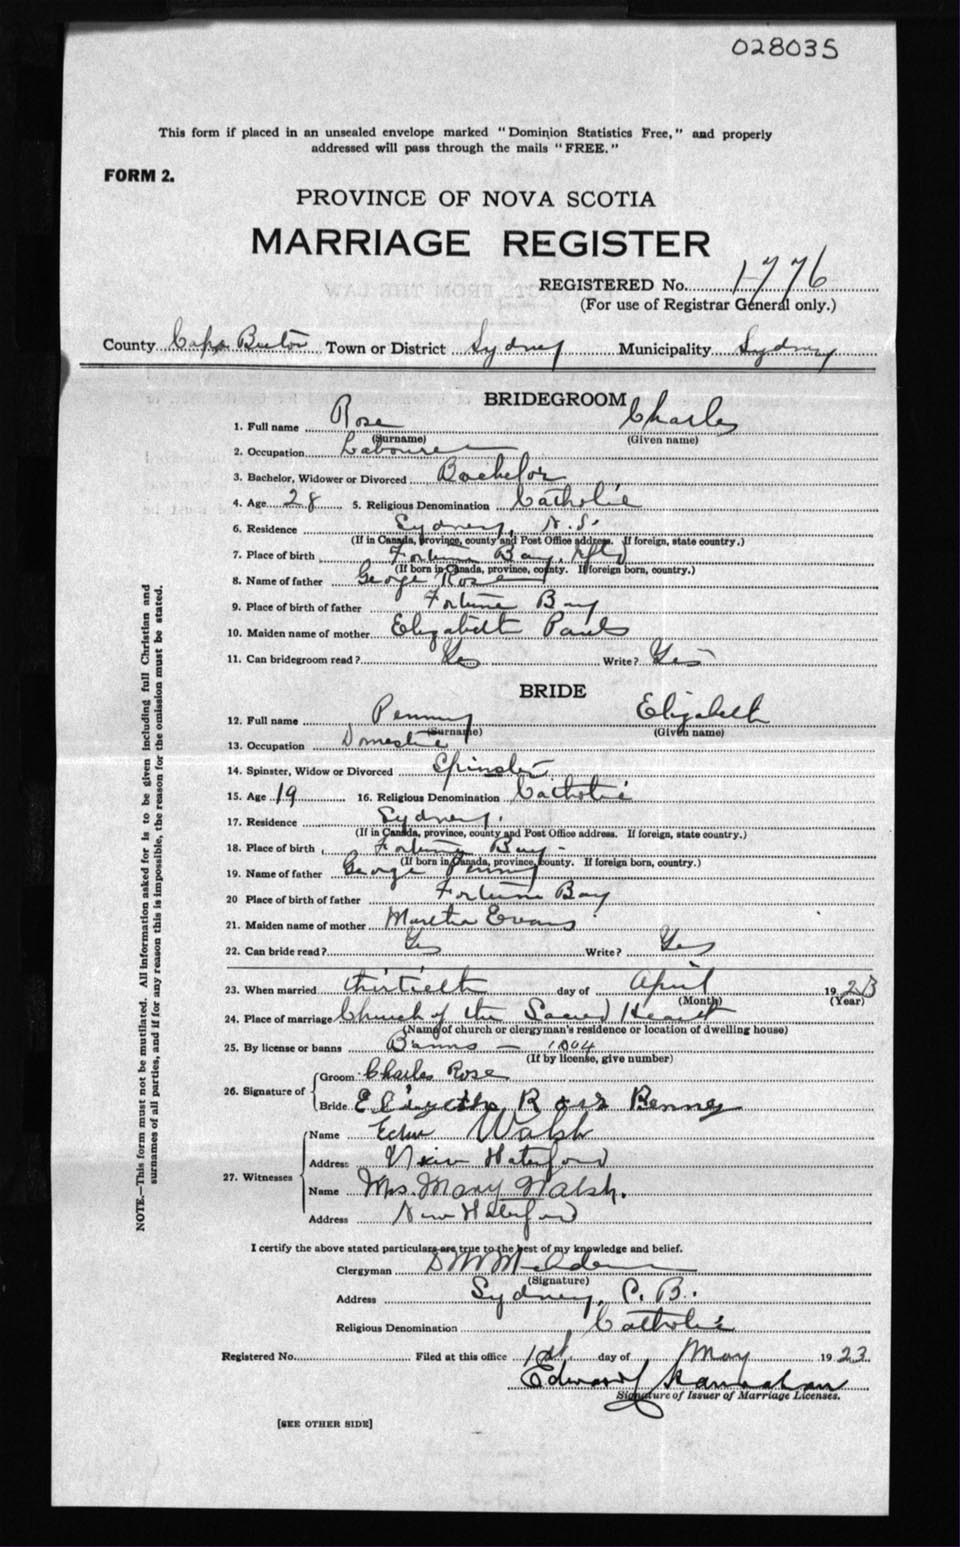 028035
This form if placed in an unsealed envelope marked "Dominion Statistics Free," and properly
addressed will pass through the mails "FREE."
FORM 2.
PROVINCE OF NOVA SCOTIA
MARRIAGE REGISTER
REGISTERED No. 1776
(For use of Registrar General only.)
County Cape Breton Town or District Sydney Municipality Sydney
BRIDEGROOM
1. Full name Rose Charles
(Surname) (Given name)
2. Occupation Labourer
3. Bachelor, Widower or Divorced Bachelor
4. Age 28 5. Religious Denomination Catholic
6. Residence Sydney, N.S.
(If in Canada, province, county and Post Office address. If foreign, state country.)
7. Place of birth Fortune Bay, Nfld
(If born in Canada, province, county. If foreign born, country.)
8. Name of father George Rose
9. Place of birth of father Fortune Bay
10. Maiden name of mother Elizabeth Pauls
11. Can bridegroom read? Yes Write? Yes
BRIDE
12. Full name Penney Elizabeth
(Surname) (Given name)
13. Occupation Domestic
14. Spinster, Widow or Divorced Spinster
15. Age 19 16. Religious Denomination Catholic
17. Residence Sydney.
(If in Canada, province, county and Post Office address. If foreign, state country.)
18. Place of birth Fortune Bay -
(If born in Canada, province, county. If foreign born, country.)
19. Name of father George Penney
20 Place of birth of father Fortune Bay
21. Maiden name of mother Martha Evans
22. Can bride read? Yes Write? Yes
23. When married thirtieth day of April 1923
(Month) (Year)
24. Place of marriage Church of the Sacred Heart
(Name of church or clergyman's residence or location of dwelling house)
25. By license or banns Banns - 1004
(If by license, give number)
26. Signature of Groom Charles Rose
Bride Rose Penney
27. Witnesses Name Walsh
Address New Waterford
Name Mrs. Mary Walsh.
Address New Waterford
I certify the above stated particulars are true to the best of my knowledge and belief.
Clergyman
(Signature)
Address Sydney, C. B.
Religious Denomination Catholic
Registered No. Filed at this office 1st day of May 1923
Edward
Signature of Issuer of Marriage Licenses.
[SEE OTHER SIDE]
NOTE.—This form must not be mutilated. All information asked for is to be given including full Christian and
surnames of all parties, and if for any reason this is impossible, the reason for the omission must be stated.